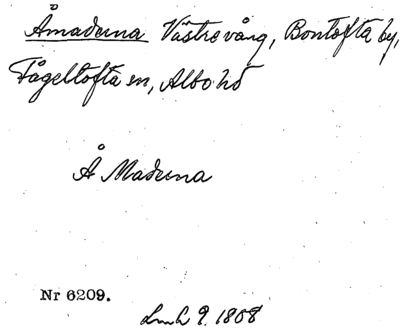 Åmaderna Västrevång, Bontofta by,
Fågeltofta sn, Albo hd
Å Maderna
Nr 6209.
Lmh 9. 1808